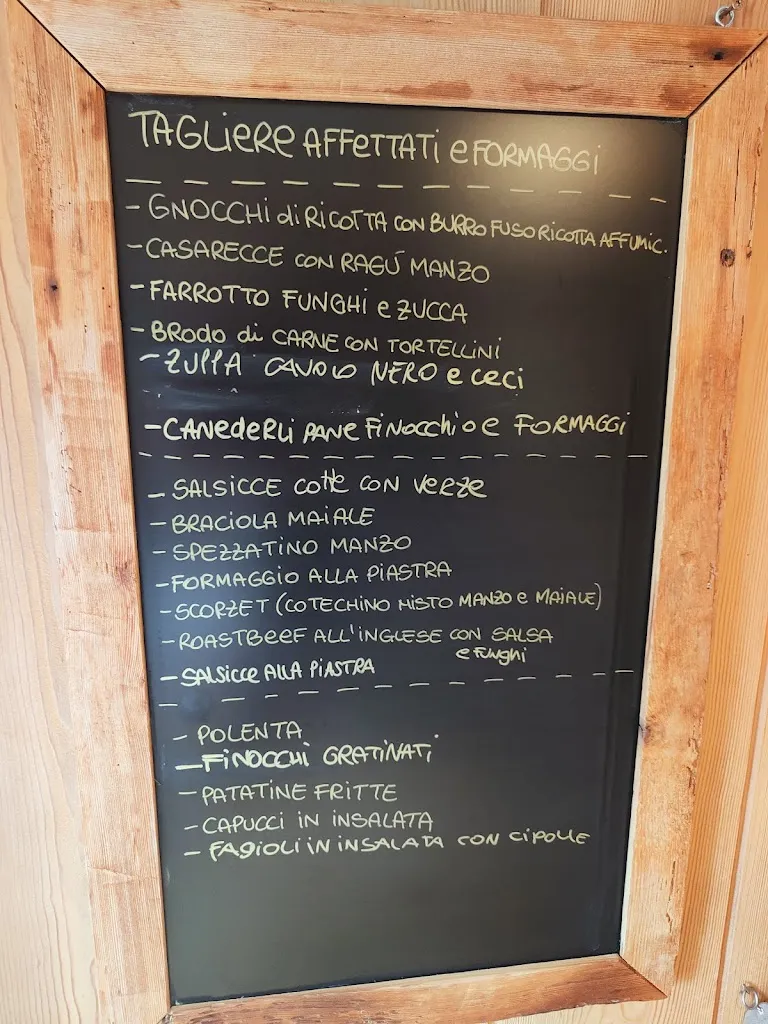 TAGLiERe AFFeTTATi e FORMAGGi
- GNOCCHi di RiCOTTA CON BURRO FUSO RiCOTTA AFFUMiC.
- CASARECCE CON RAGÚ MANZO
- FARROTTO FUNGHi e ZUCCA
- BRODO di CARNE CON TORTELLiNi
- ZUPPA CAVOLO NERO e CeCi
- CANedeRLi PANe FiNOCCHiO e FORMAGGi
- SALSiCCE COTTE CON VeRZe
- BRACiOLA MAiALE
- SPEZZATiNO MANZO
- FORMAGGiO ALLA PiASTRA
- SCORZET (COTECHiNO MiSTO MANZO e MAiALE)
- ROASTBeeF ALL'iNGLESE CON SALSA
e FUNGHi
- SALSiCCe ALLA PiASTRA
- POLENTA
- FiNOCCHi GRATiNATi
- PATATiNE FRiTTE
- CAPUCCi iN iNSALATA
- FAGiOLi iN iNSALATA CON CiPOLLE